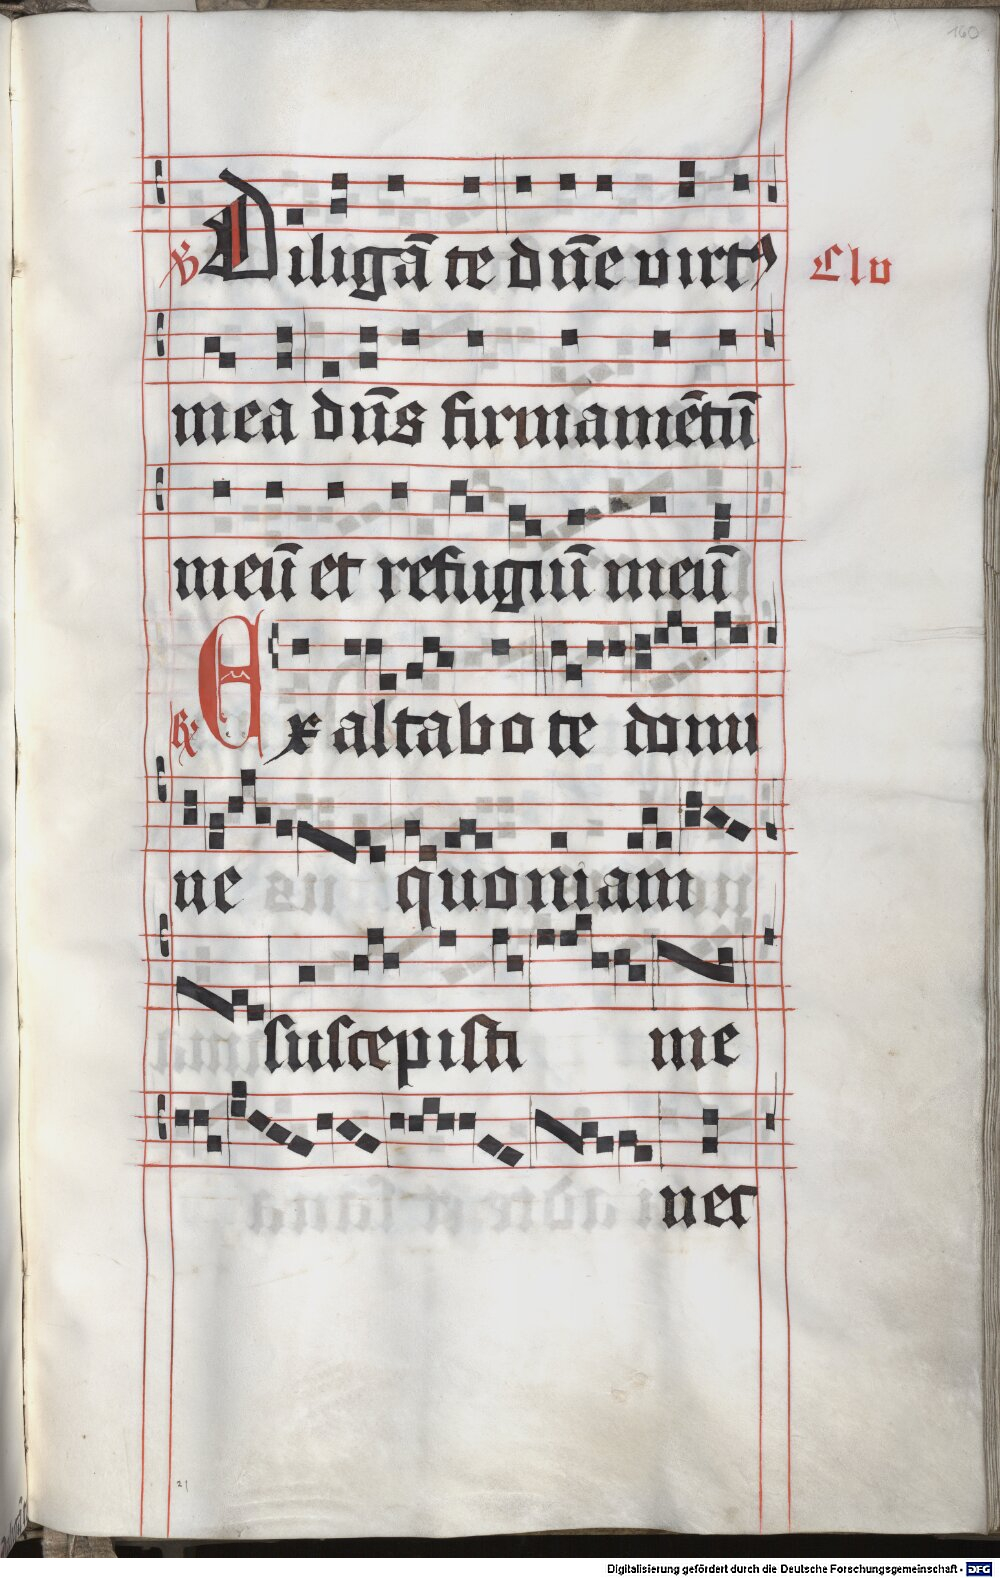 160
℣ Diligā te dn̄e virtꝰ Clv
mea dn̄s firmamētū
meū et refugiū meū
℟ Exaltabo te domi
ne quoniam
suscepisti me
nec
21
Digitalisierung gefördert durch die Deutsche Forschungsgemeinschaft - DFG